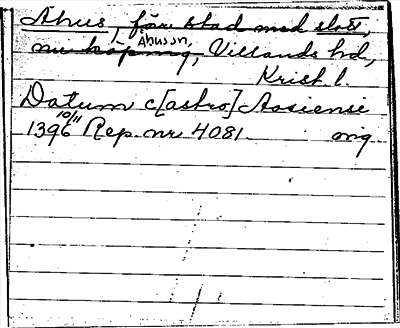 Åhus, förr stad med slott,
nu köping, Åhus sn, Villands hd,
Krist. l.
Datum c[astro] Aosiensi
1396 10/11 Rep. nr 4081. mg